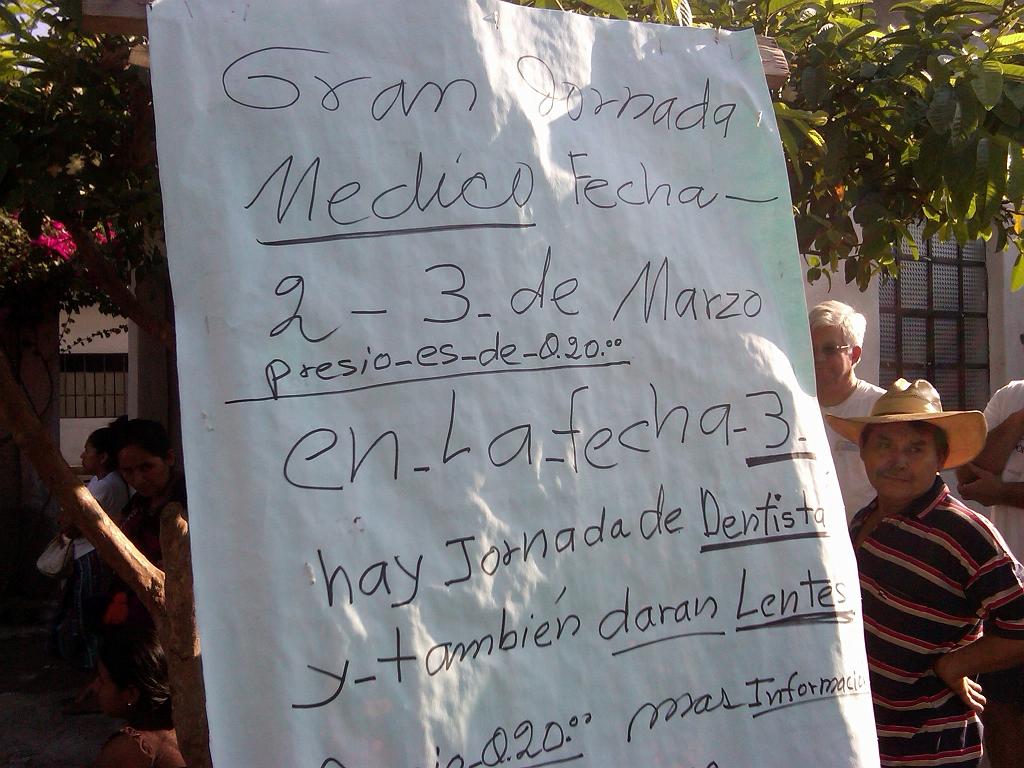 Gran Jornada
Medico Fecha-
2 - 3 - de Marzo
presio-es-de-Q.20.00
en-La-fecha-3.
hay Jornada de Dentista
y-también daran Lentes
Q.20.00 mas